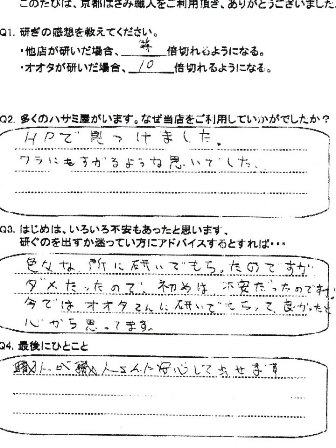 このたびは、京都はさみ職人をご利用頂き、ありがとうございました
Q1. 研ぎの感想を教えてください。
・他店が研いだ場合、 倍切れるようになる。
・オオタが研いだ場合、 10 倍切れるようになる。
Q2. 多くのハサミ屋がいます。なぜ当店をご利用していかがでしたか?
HPで見つけました。
ワラにもすがるような思いでした。
Q3. はじめは、いろいろ不安もあったと思います、
研ぐのを出すか迷っている方にアドバイスするとすれば・・・
色々な所に研いでもらったのですが
ダメだったので、初めは不安だったのですが
今ではオオタさんに研いでもらって、良かったと
心から思ってます。
Q4. 最後にひとこと
職人さんに安心して出せます